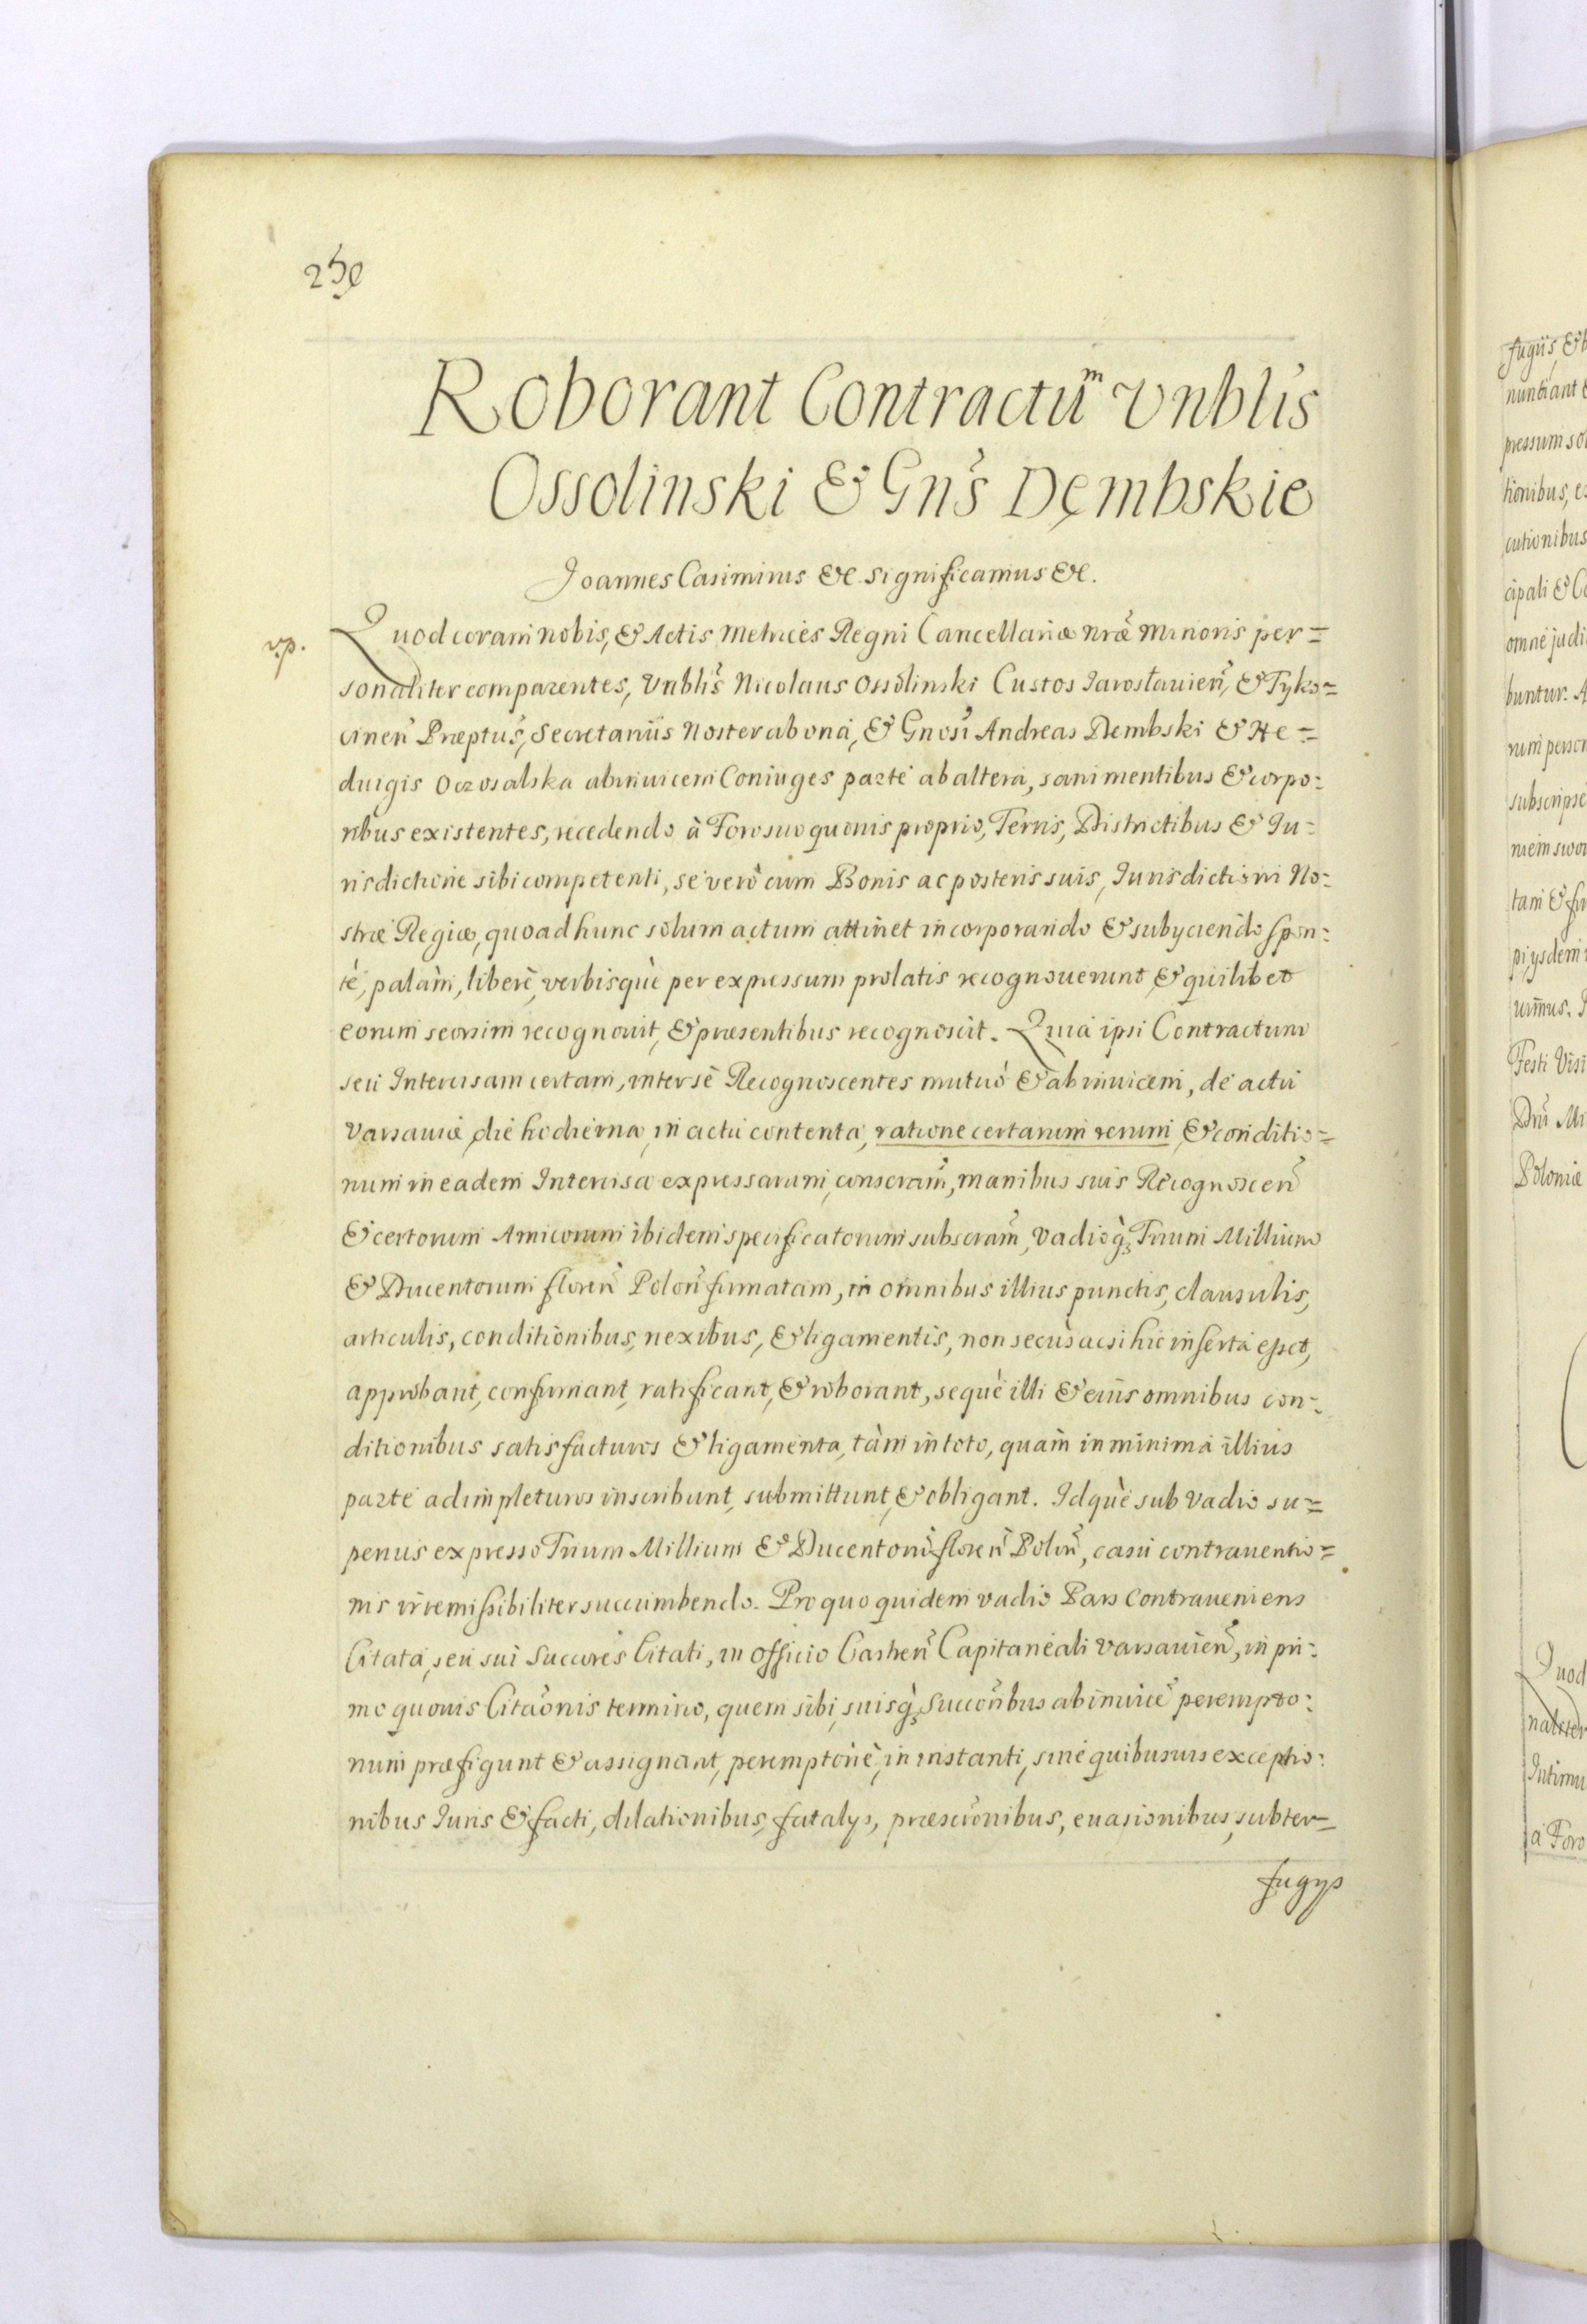 Roborant Contractũm Vnblis
Ossolinski & Gñs Dęmbskie
Joannes Casimirus &c. Significamus &c.
v.p.
Quod coram nobis, & Actis Metrices Regni Cancellariæ nr̃æ Minoris per=
sonaliter comparentes, Vnblis̃ Nicolaus Ossolinski Custos Jarosławien̄, & Tyko=
cinen̄ Præptus̃, Secretariũs Noster ab onà, & Gnosĩ Andreas Dembski & He=
duigis Oczosalska abinuicem Coniuges parte ab altera, sani mentibus & corpo=
ribus existentes, recedendo à Foro suo quouis proprio, Terris, Districtibus & Ju=
risdictione sibi competenti, se verò cum Bonis ac posteris suis, Jurisdictioni No=
stræ Regiæ, quoad hunc solum actum attinet incorporando & subyciendo spon=
tè, palàm, liberè, verbisquè per expressum prolatis recognouerunt & quilibet
eorum seorsim recognouit, & præsentibus recognoscit. Quia ipsi Contractum
seu Intercisam certam, inter sè Recognoscentes mutuò & abinuicem, de actu
Varsauiæ die hodierna, in actu contenta, ratione certarum rerum, & conditio=
num in eadem Intercisa expressarum, conscram̃, manibus suis Recognoscen̄
& certorum Amicorum ibidem specificatorum subscram̃, Vadioq̀ Trium Millium
& Ducentorum floren̄ Polon̄ firmatam, in omnibus illius punctis, clausulis,
articulis, conditionibus, nexibus, & ligamentis, non secùs ac si hìc inserta esset,
approbant, confirmant, ratificant, & roborant, sequè illi & eiũs omnibus con=
ditionibus satisfacturos & ligamenta, tàm in toto, quàm in minimà illius
parte adimpleturos inscribunt, submittunt, & obligant. Idquè sub Vadio su=
perius expresso Trium Millium & Ducentorũ floren̄ Polon̄, casu contrauentio=
nis irremissibiliter succumbendo. Pro quo quidem vadio Pars Contraueniens
Citata, seu sui Succures Citati, in Officio Castren̄ Capitaneali Varsauien̄, in pri=
mo quouis Citaõnis termino, quem sibi, suisq̀ Succoribus abinuicē perempto=
rium præfigunt & assignant, peremptoriè, in instanti, sine quibusuis exceptio=
nibus Juris & facti, dilationibus, fatalys, præscronibus, euasionibus, subter=
fugys